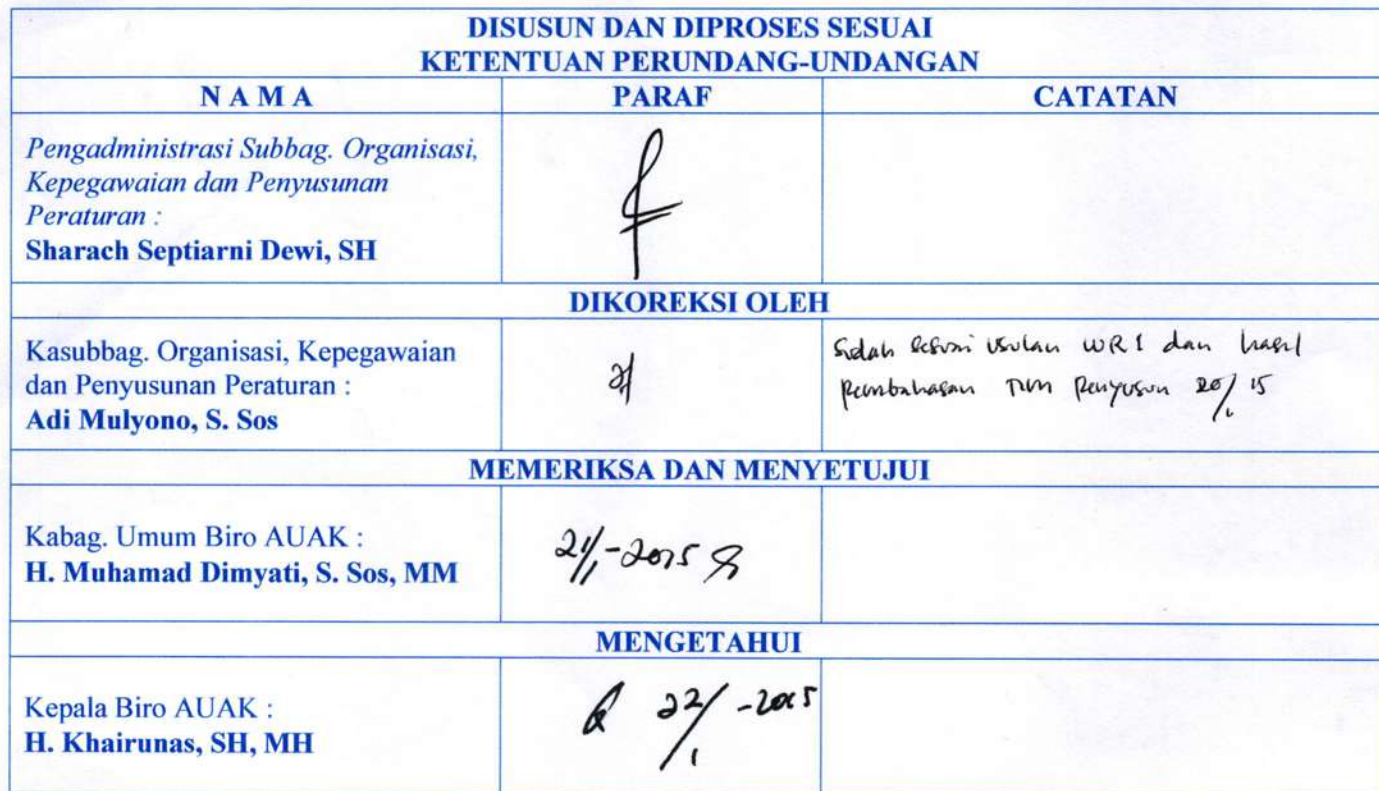 DISUSUN DAN DIPROSES SESUAI
KETENTUAN PERUNDANG-UNDANGAN
N A M A PARAF CATATAN
Pengadministrasi Subbag. Organisasi,
Kepegawaian dan Penyusunan
Peraturan :
Sharach Septiarni Dewi, SH
DIKOREKSI OLEH
Kasubbag. Organisasi, Kepegawaian
dan Penyusunan Peraturan :
Adi Mulyono, S. Sos
Sudah sesuai usulan WR I dan hasil
pembahasan Tim Penyusun 20/1 15
MEMERIKSA DAN MENYETUJUI
Kabag. Umum Biro AUAK :
H. Muhamad Dimyati, S. Sos, MM
21/1-2015
MENGETAHUI
Kepala Biro AUAK :
H. Khairunas, SH, MH
22/1-2015